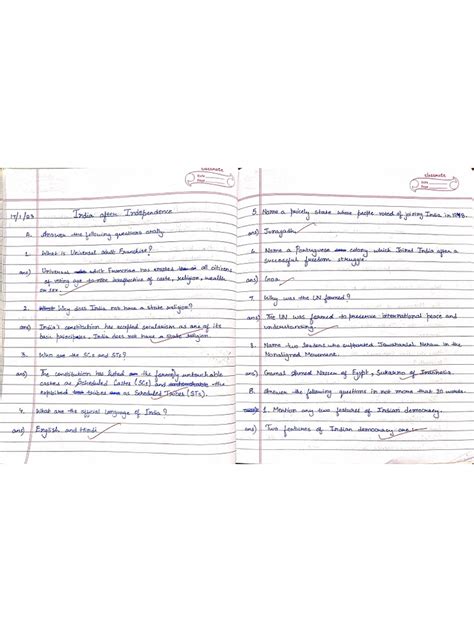 classmate
Date
Page
17/1/23 India after Independence
A. Answer the following questions orally
1. What is Universal Adult Franchise?
ans) Universal adult Franchise has granted to all citizens
of voting age to vote irrespective of caste, religion, wealth
or sex.
2. Why does India not have a state religion?
ans) India's constitution has accepted secularism as one of its
basic principles. India does not have a state religion.
3. Who are the SCs and STs?
ans) The constitution has listed the formerly untouchable
castes as Scheduled Castes (SCs) and the
exploited tribes as Scheduled Tribes (STs).
4. What are the official language of India?
ans) English and Hindi
classmate
Date
Page
5. Name a princely state whose people voted of joining India in 1948.
ans) Junagadh
6. Name a Portuguese colony which Joined India after a
successful freedom struggle.
ans) Goa
7. Why was the UN formed?
ans) The UN was formed to international peace and
understanding.
8. Name two leaders who supported Jawaharlal Nehru in the
Nonaligned Movement.
ans) Gamal Nasser of Egypt, Sukarno of Indonesia.
B. Answer the following questions in not more than 20 words.
1. Mention any two features of Indian democracy.
ans) Two features of Indian democracy are:-